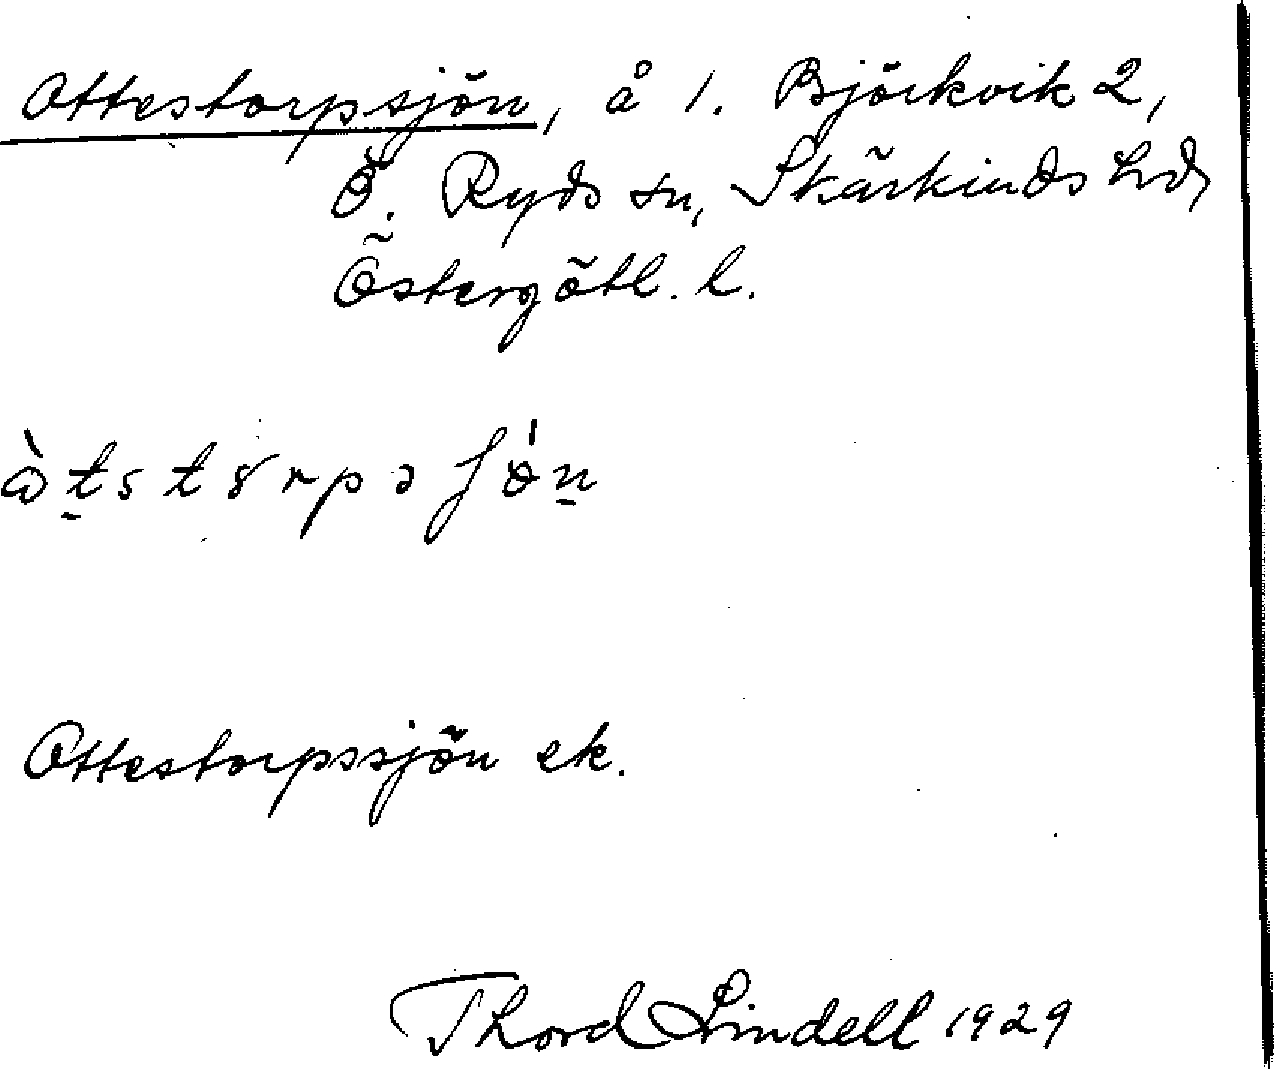 Ottestorpsjön, å 1. Björkvik 2,
Ö. Ryds sn, Skärkinds hd,
Östergötl. l.
Ottestorpssjön ek.
Thord Lindell 1929